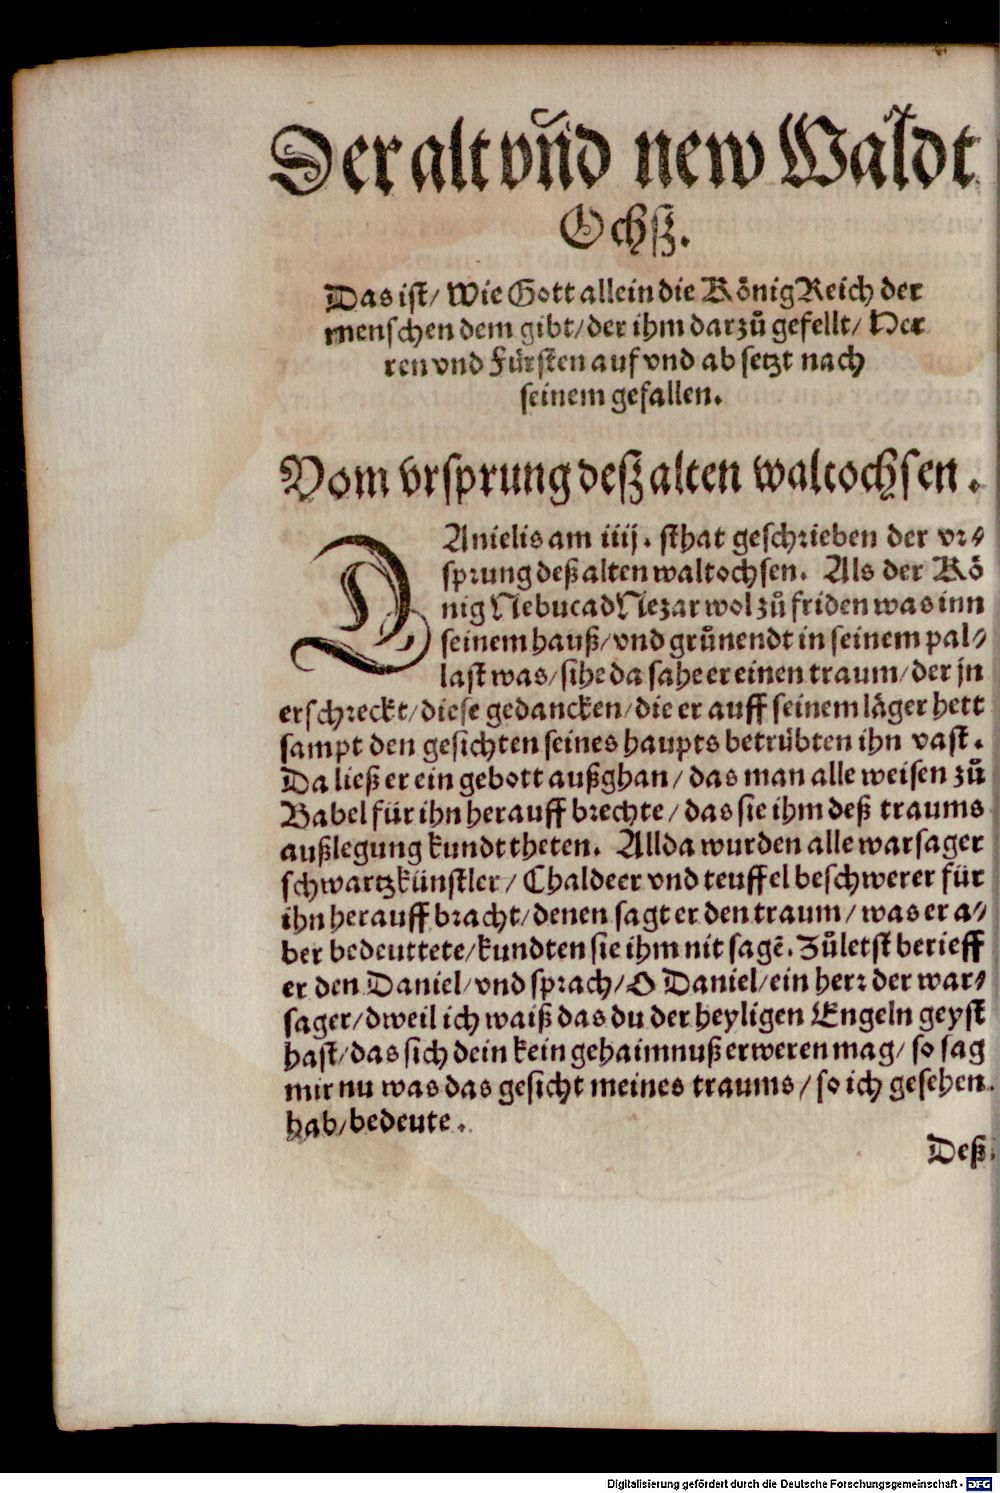 Der alt vñd new Waldt
Ochsz.
Das ist/ Wie Gott allein die König Reich der
menschen dem gibt/ der ihm darzů gefellt/ Her
ren vnd Fürsten auf vnd ab setzt nach
seinem gefallen.
Vom vrsprung desz alten waltochsen.
DAnielis am iiij. sthat geschrieben der vr⸗
sprung deß alten waltochsen. Als der Kö
nig NebucadNezar wol zů friden was inn
seinem hauß/ vnd grůnendt in seinem pal⸗
last was/ sihe da sahe er einen traum/ der jn
erschreckt/ diese gedancken/ die er auff seinem läger hett
sampt den gesichten seines haupts betrübten ihn vast.
Da ließ er ein gebott außghan/ das man alle weisen zů
Babel für ihn herauff brechte/ das sie ihm deß traums
außlegung kundt theten. Allda wurden alle warsager
schwartzkünstler/ Chaldeer vnd teuffel beschwerer für
ihn herauff bracht/ denen sagt er den traum/ was er a⸗
ber bedeuttete/ kundten sie ihm nit sagē. Zůletst berieff
er den Daniel/ vnd sprach/ O Daniel/ ein herr der war⸗
sager/ dweil ich waiß das du der heyligen Engeln geyst
hast/ das sich dein kein gehaimnuß erweren mag/ so sag
mir nu was das gesicht meines traums/ so ich gesehen
hab/ bedeute.
Deß
Digitalisierung gefördert durch die Deutsche Forschungsgemeinschaft - DFG